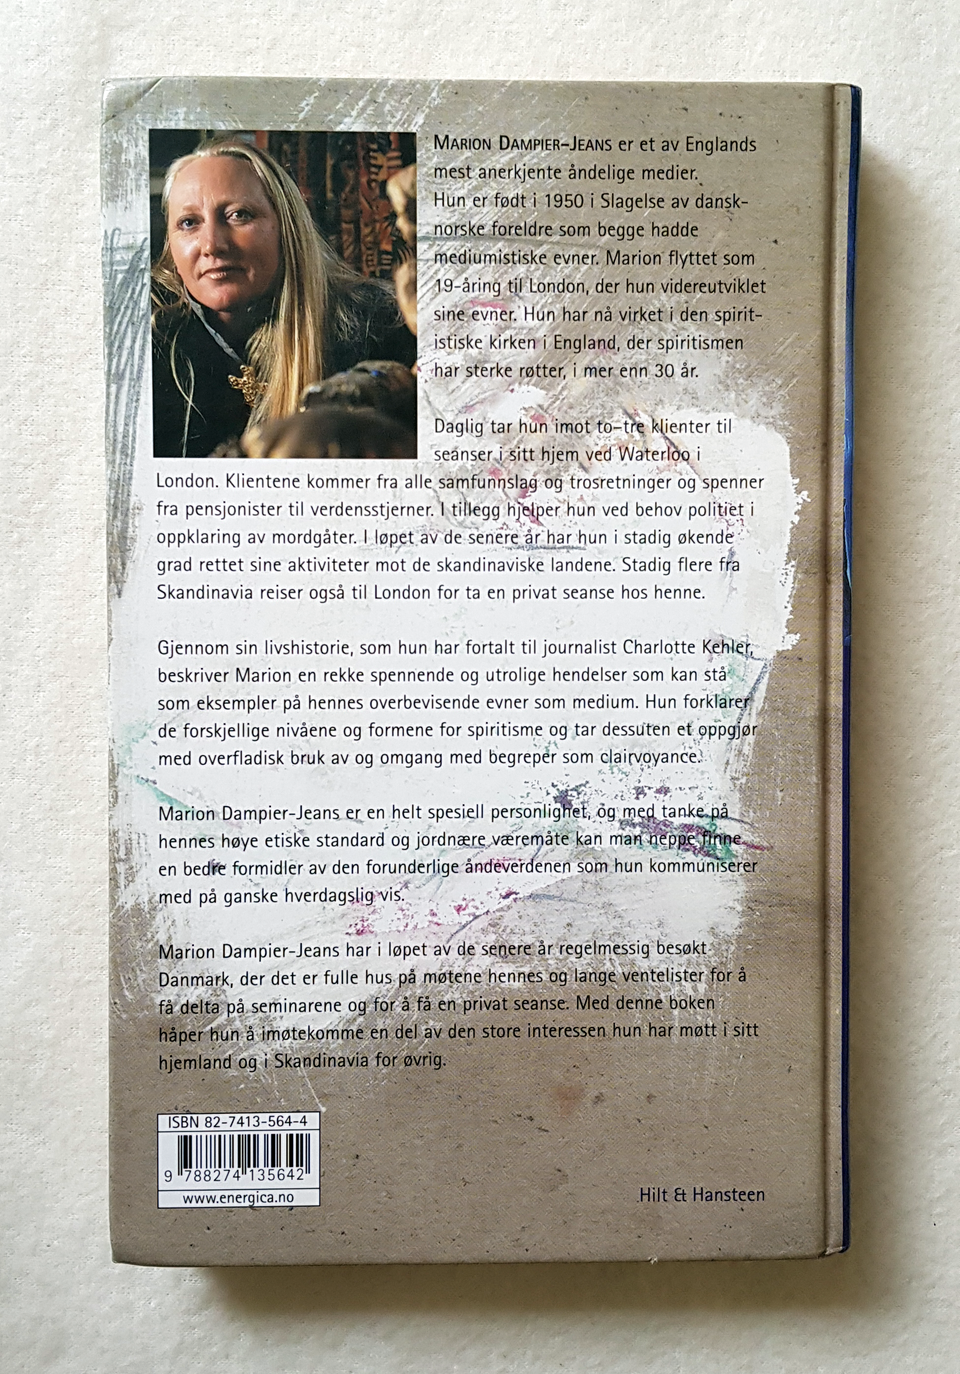 MARION DAMPIER-JEANS er et av Englands
mest anerkjente åndelige medier.
Hun er født i 1950 i Slagelse av dansk-
norske foreldre som begge hadde
mediumistiske evner. Marion flyttet som
19-åring til London, der hun videreutviklet
sine evner. Hun har nå virket i den spirit-
istiske kirken i England, der spiritismen
har sterke røtter, i mer enn 30 år.
Daglig tar hun imot to–tre klienter til
seanser i sitt hjem ved Waterloo i
London. Klientene kommer fra alle samfunnslag og trosretninger og spenner
fra pensjonister til verdensstjerner. I tillegg hjelper hun ved behov politiet i
oppklaring av mordgåter. I løpet av de senere år har hun i stadig økende
grad rettet sine aktiviteter mot de skandinaviske landene. Stadig flere fra
Skandinavia reiser også til London for ta en privat seanse hos henne.
Gjennom sin livshistorie, som hun har fortalt til journalist Charlotte Kehler,
beskriver Marion en rekke spennende og utrolige hendelser som kan stå
som eksempler på hennes overbevisende evner som medium. Hun forklarer
de forskjellige nivåene og formene for spiritisme og tar dessuten et oppgjør
med overfladisk bruk av og omgang med begreper som clairvoyance.
Marion Dampier-Jeans er en helt spesiell personlighet, og med tanke på
hennes høye etiske standard og jordnære væremåte kan man neppe finne
en bedre formidler av den forunderlige åndeverdenen som hun kommuniserer
med på ganske hverdagslig vis.
Marion Dampier-Jeans har i løpet av de senere år regelmessig besøkt
Danmark, der det er fulle hus på møtene hennes og lange ventelister for å
få delta på seminarene og for å få en privat seanse. Med denne boken
håper hun å imøtekomme en del av den store interessen hun har møtt i sitt
hjemland og i Skandinavia for øvrig.
ISBN 82-7413-564-4
9 788274 135642
www.energica.no
Hilt & Hansteen